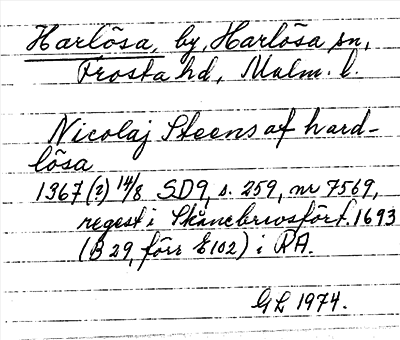 Harlösa, by, Harlösa sn,
Frosta hd, Malm. l.
Nicolaj Steens af hard-
lösa
1367(?) 14/8 SD9, s. 259, nr 7569,
regest i Skånebrevsfört. 1693
(B 29, förr E102) i RA.
GL 1974.